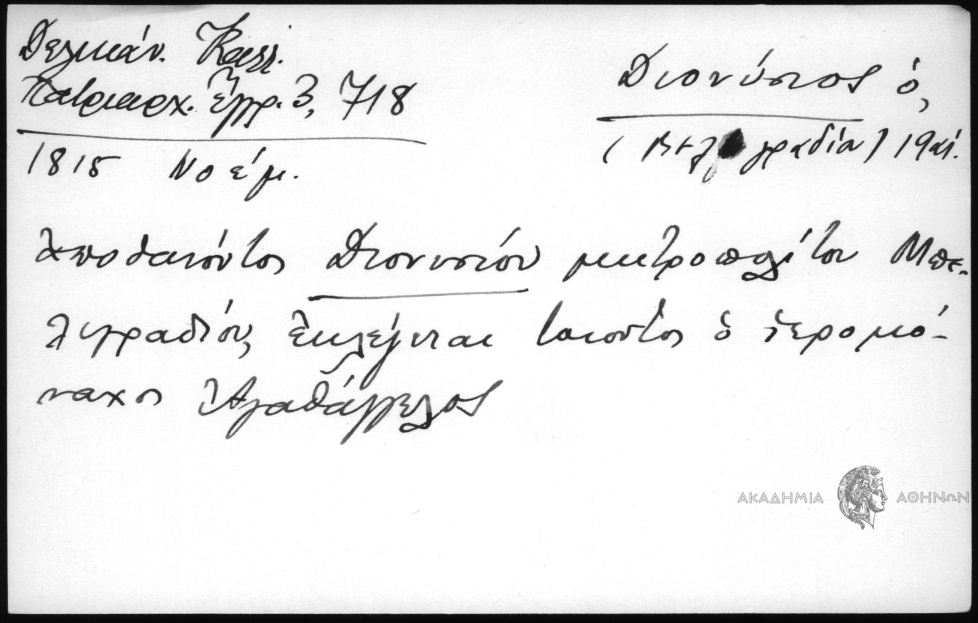 Δελικάν. Καλλ.
Πατριαρχ. Ἔγγρ. 3, 718
Διονύσιος ὁ,
1815 Νοέμ.
Ἀποθανόντος Διονυσίου μητροπολίτου Μπε-
λιγραδίου, ἐκλέγεται τοιοῦτος ὁ ἱερομό-
ναχος Ἀγαθάγγελος
ΑΚΑΔΗΜΙΑ ΑΘΗΝΩΝ